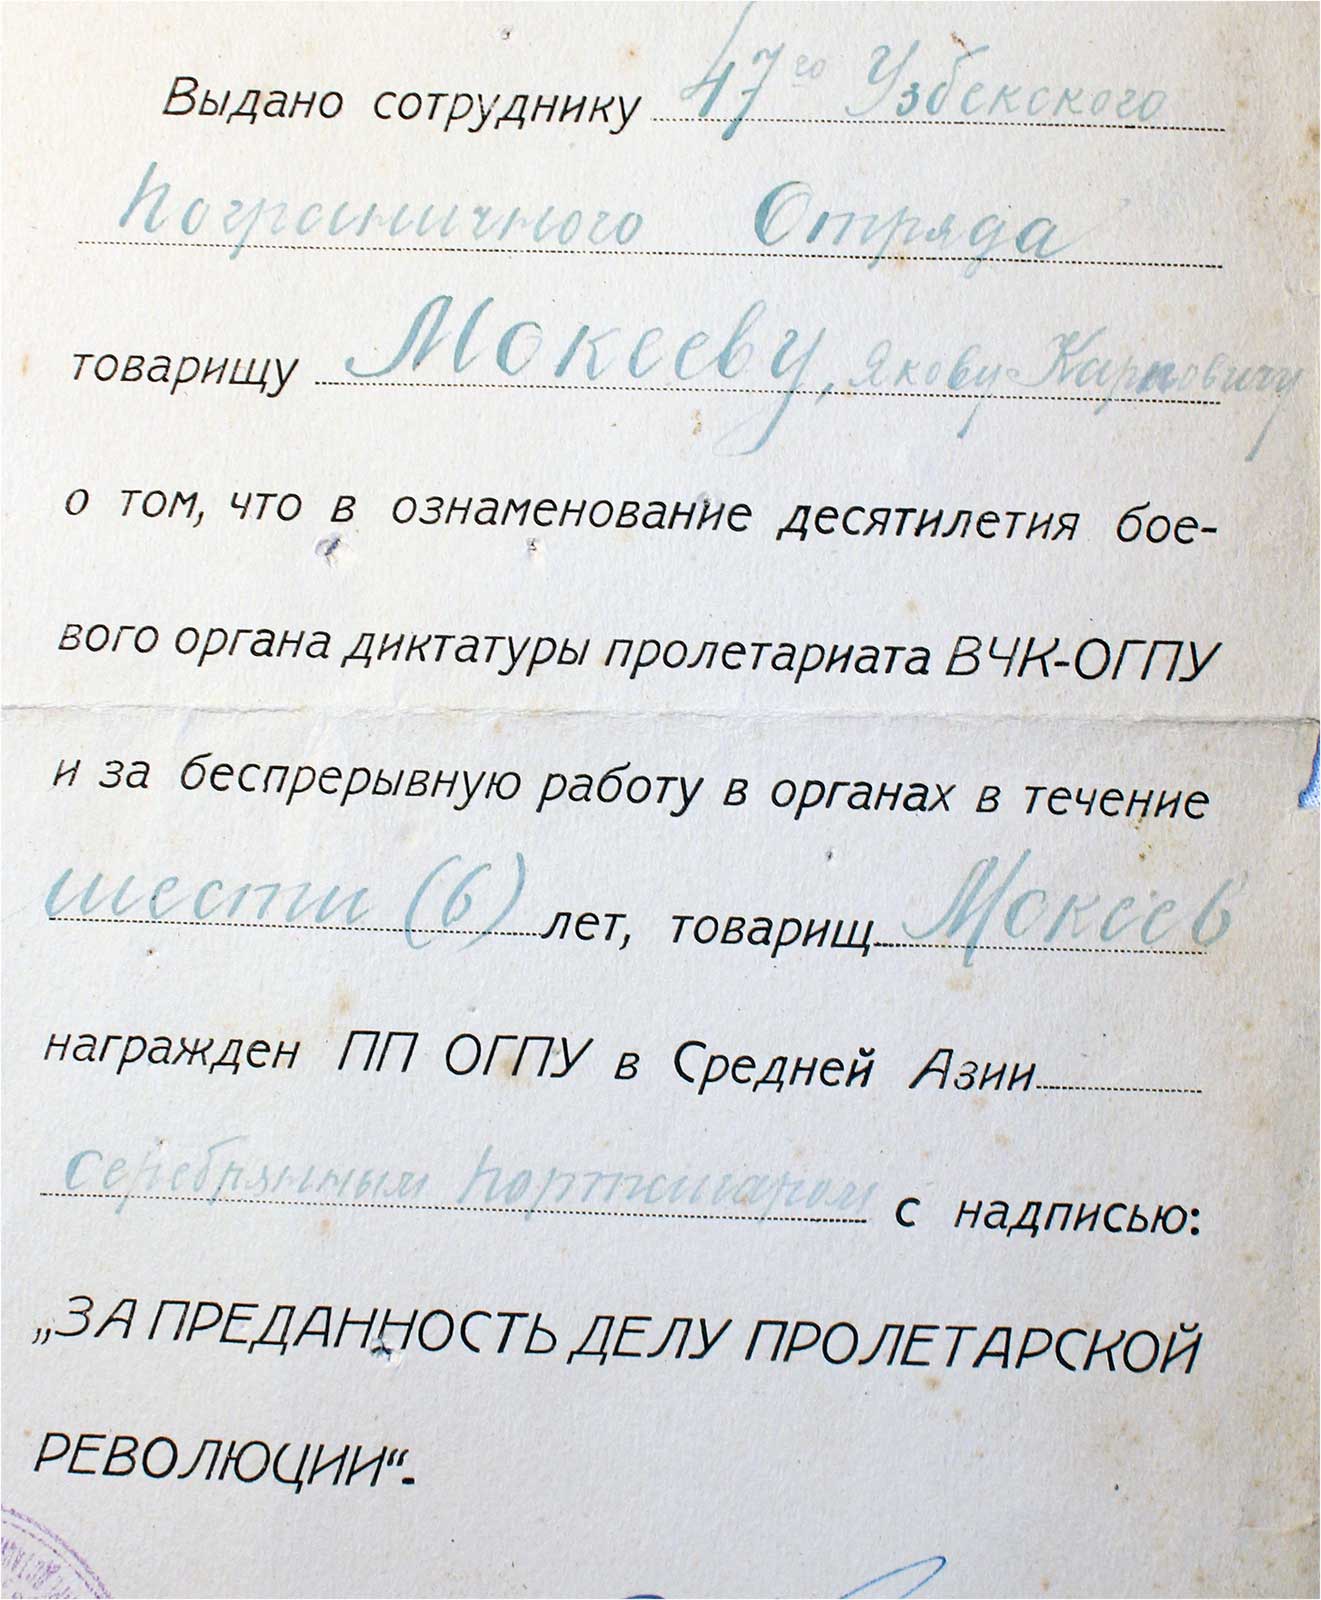 Выдано сотруднику 47го Узбекского
Пограничного Отряда
товарищу Мокееву, Якову Карповичу
о том, что в ознаменование десятилетия бое-
вого органа диктатуры пролетариата ВЧК-ОГПУ
и за беспрерывную работу в органах в течение
шести (6) лет, товарищ Мокеев
награжден ПП ОГПУ в Средней Азии
серебрянным портсигаром с надписью:
„ЗА ПРЕДАННОСТЬ ДЕЛУ ПРОЛЕТАРСКОЙ
РЕВОЛЮЦИИ“.